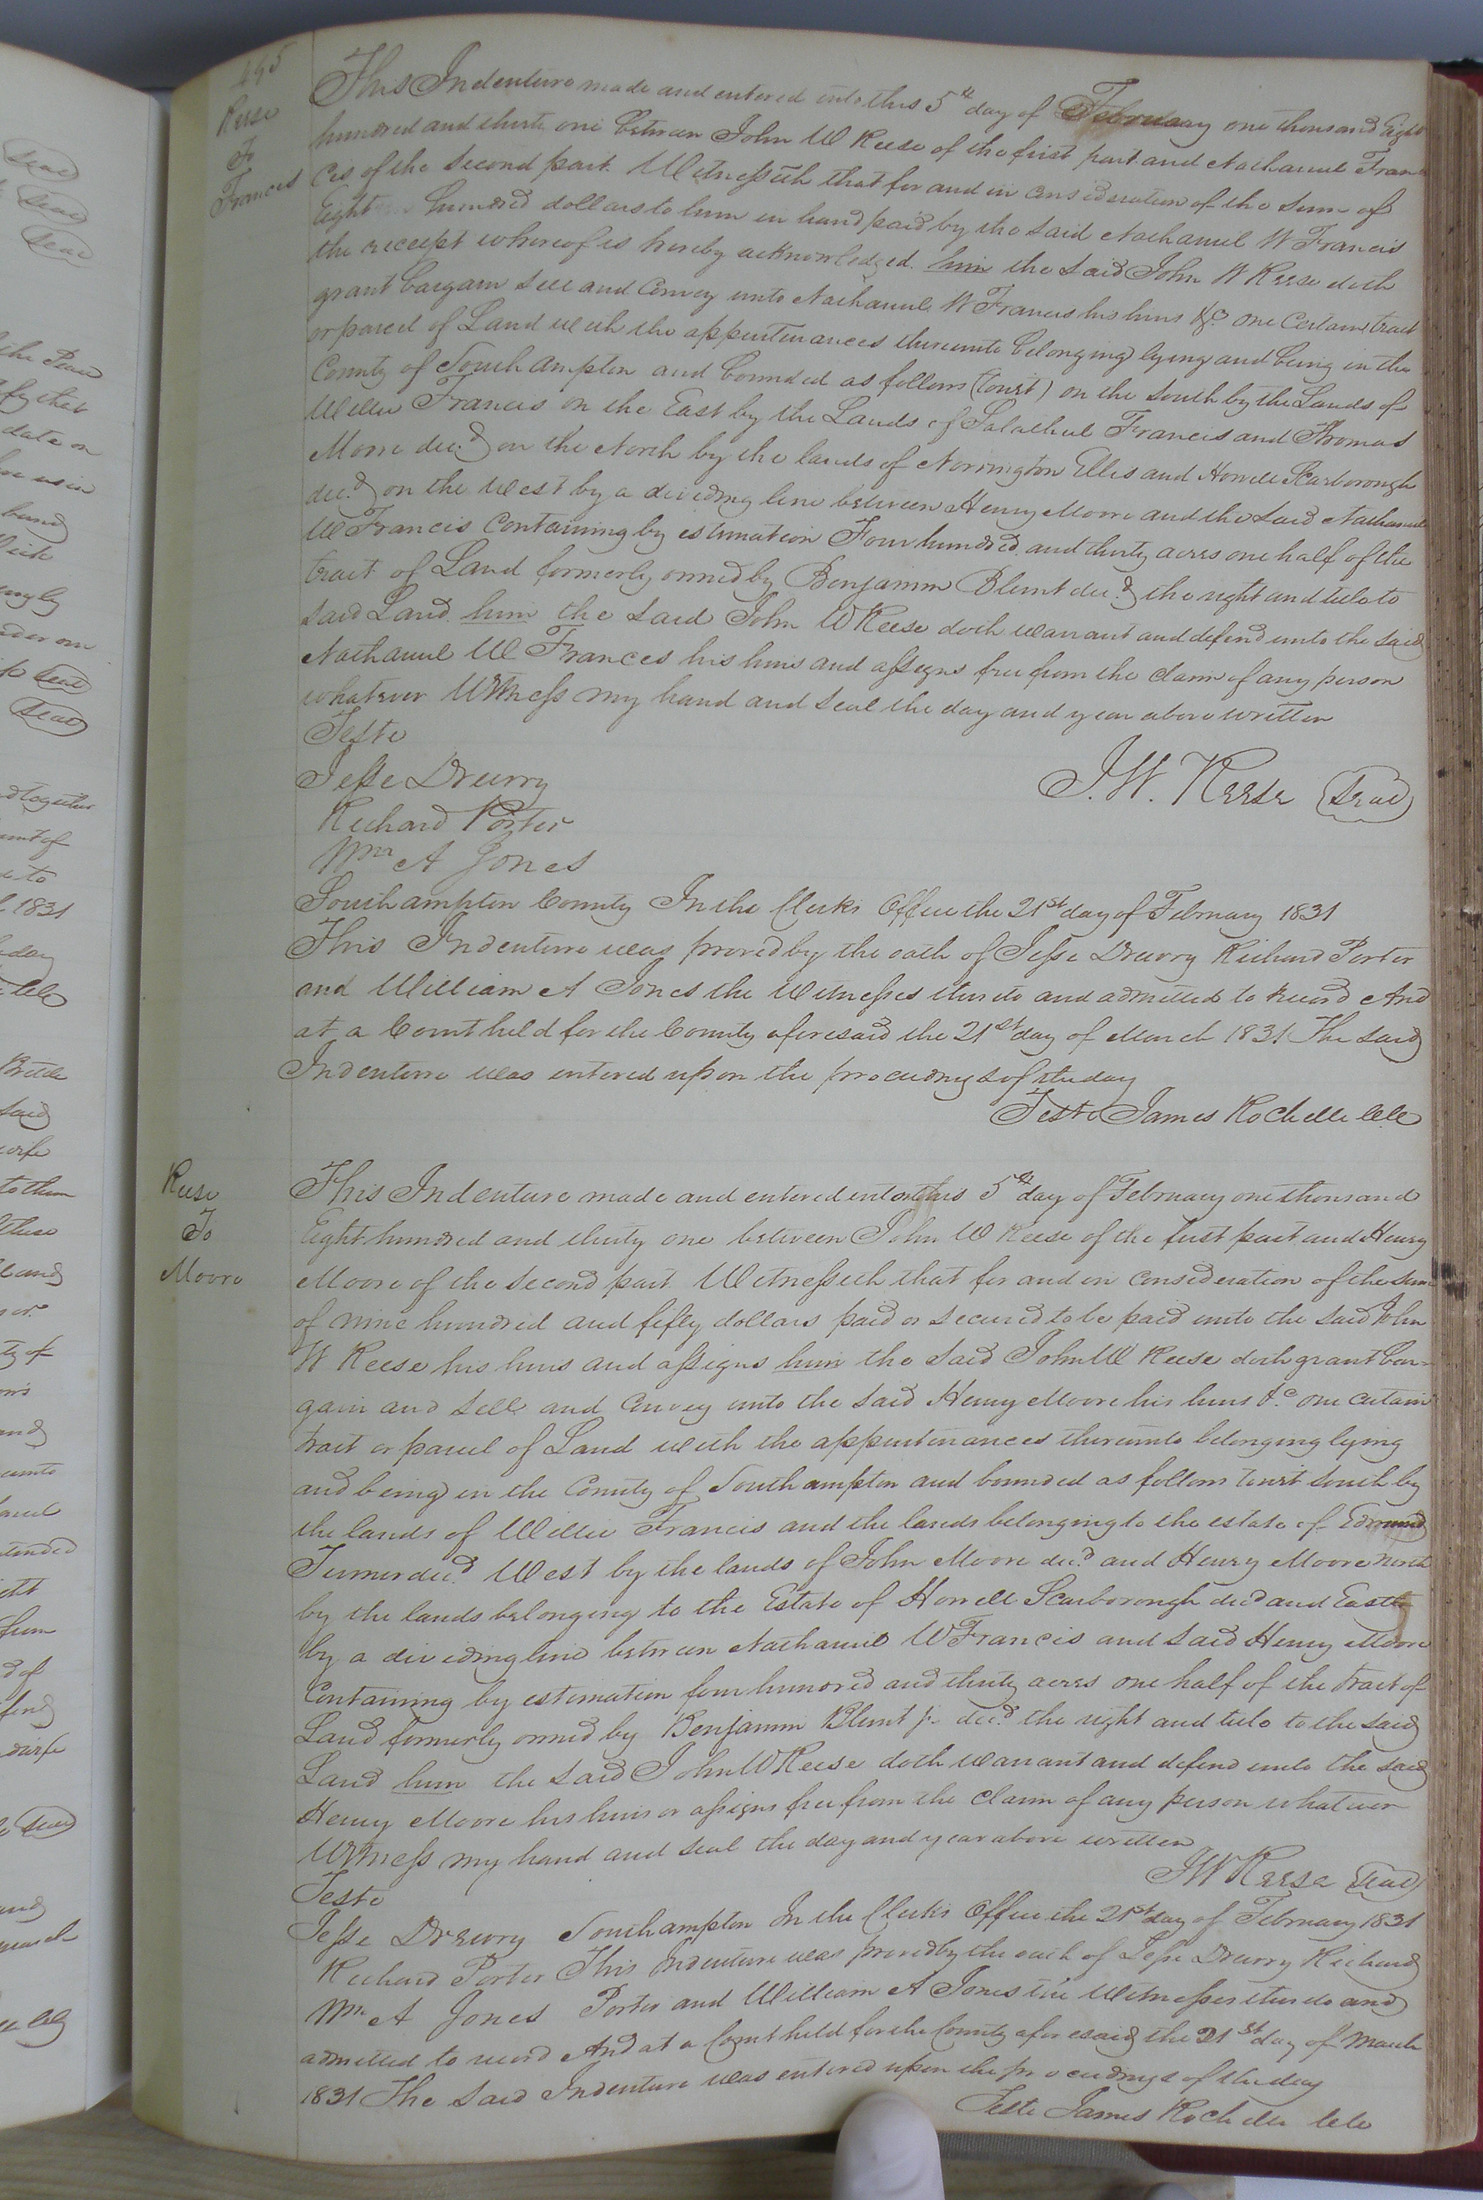 495
Reese
To
Frances
This Indenture made and entered into this 5th day of February one thousand Eight
hundred and thirty one between John W Reese of the first part and Nathaniel Fran
ces of the Second part. Witnesseth that for and in consideration of the Sum of
Eight hundred dollars to him in hand paid by the said Nathaniel W Francis
the receipt whereof is hereby acknowledged. him the said John W Reese doth
grant bargain sell and convey unto Nathaniel W Francis his heirs &c one certain tract
or parcel of Land with the appurtenances thereunto belonging lying and being in the
County of Southampton and bounded as follows (towit) on the South by the Lands of
Willie Francis on the East by the Lands of Salathiel Francis and Thomas
Moore decd on the North by the lands of Norrington Ellis and Howell Scarborough
decd on the West by a dividing line between Henry Moore and the said Nathaniel
W Francis Containing by estimation Four hundred and thirty acres one half of the
tract of Land formerly owned by Benjamin Blunt decd the right and title to
said Land him the said John W Reese doth warrant and defend unto the said
Nathaniel W Frances his heirs and assigns free from the claim of any person
whatever Witness my hand and seal the day and year above written
Teste
Jesse Drewry
J. W. Reese Seal
Richard Porter
Wm A Jones
Southampton County In the Clerks Office the 21st day of February 1831
This Indenture was proved by the oath of Jesse Drewry Richard Porter
and William A Jones the Witnesses thereto and admitted to record And
at a Court held for the County aforesaid the 21st day of March 1831 The said
Indenture was entered upon the proceedings of the day
Teste James Rochelle Clk
Reese
To
Moore
This Indenture made and entered into this 5th day of February one thousand
Eight hundred and thirty one between John W Reese of the first part and Henry
Moore of the second part Witnesseth that for and in consideration of the sum
of nine hundred and fifty dollars paid or secured to be paid unto the said John
W Reese his heirs and assigns him the said John W Reese doth grant bar-
gain and sell and convey unto the said Henry Moore his heirs &c one certain
tract or parcel of Land with the appurtenances thereunto belonging lying
and being in the County of Southampton and bounded as follows towit South by
the lands of Willie Francis and the lands belonging to the estate of Edmund
Turner decd West by the lands of John Moore decd and Henry Moore North
by the lands belonging to the Estate of Howell Scarborough decd and East
by a dividing line between Nathaniel W Francis and said Henry Moore
Containing by estimation four hundred and thirty acres one half of the tract of
Land formerly owned by Benjamin Blunt jr decd the right and title to the said
Land him the said John W Reese doth warrant and defend unto the said
Henry Moore his heirs or assigns free from the claim of any person whatever
Witness my hand and seal the day and year above written
J W Reese Seal
Teste
Jesse Drewry Southampton In the Clerks Office the 21st day of February 1831
Richard Porter This Indenture was proved by the oath of Jesse Drewry Richard
Wm A Jones Porter and William A Jones the Witnesses thereto and
admitted to record And at a Court held for the County aforesaid the 21st day of March
1831 The said Indenture was entered upon the proceedings of the day
Teste James Rochelle Clk